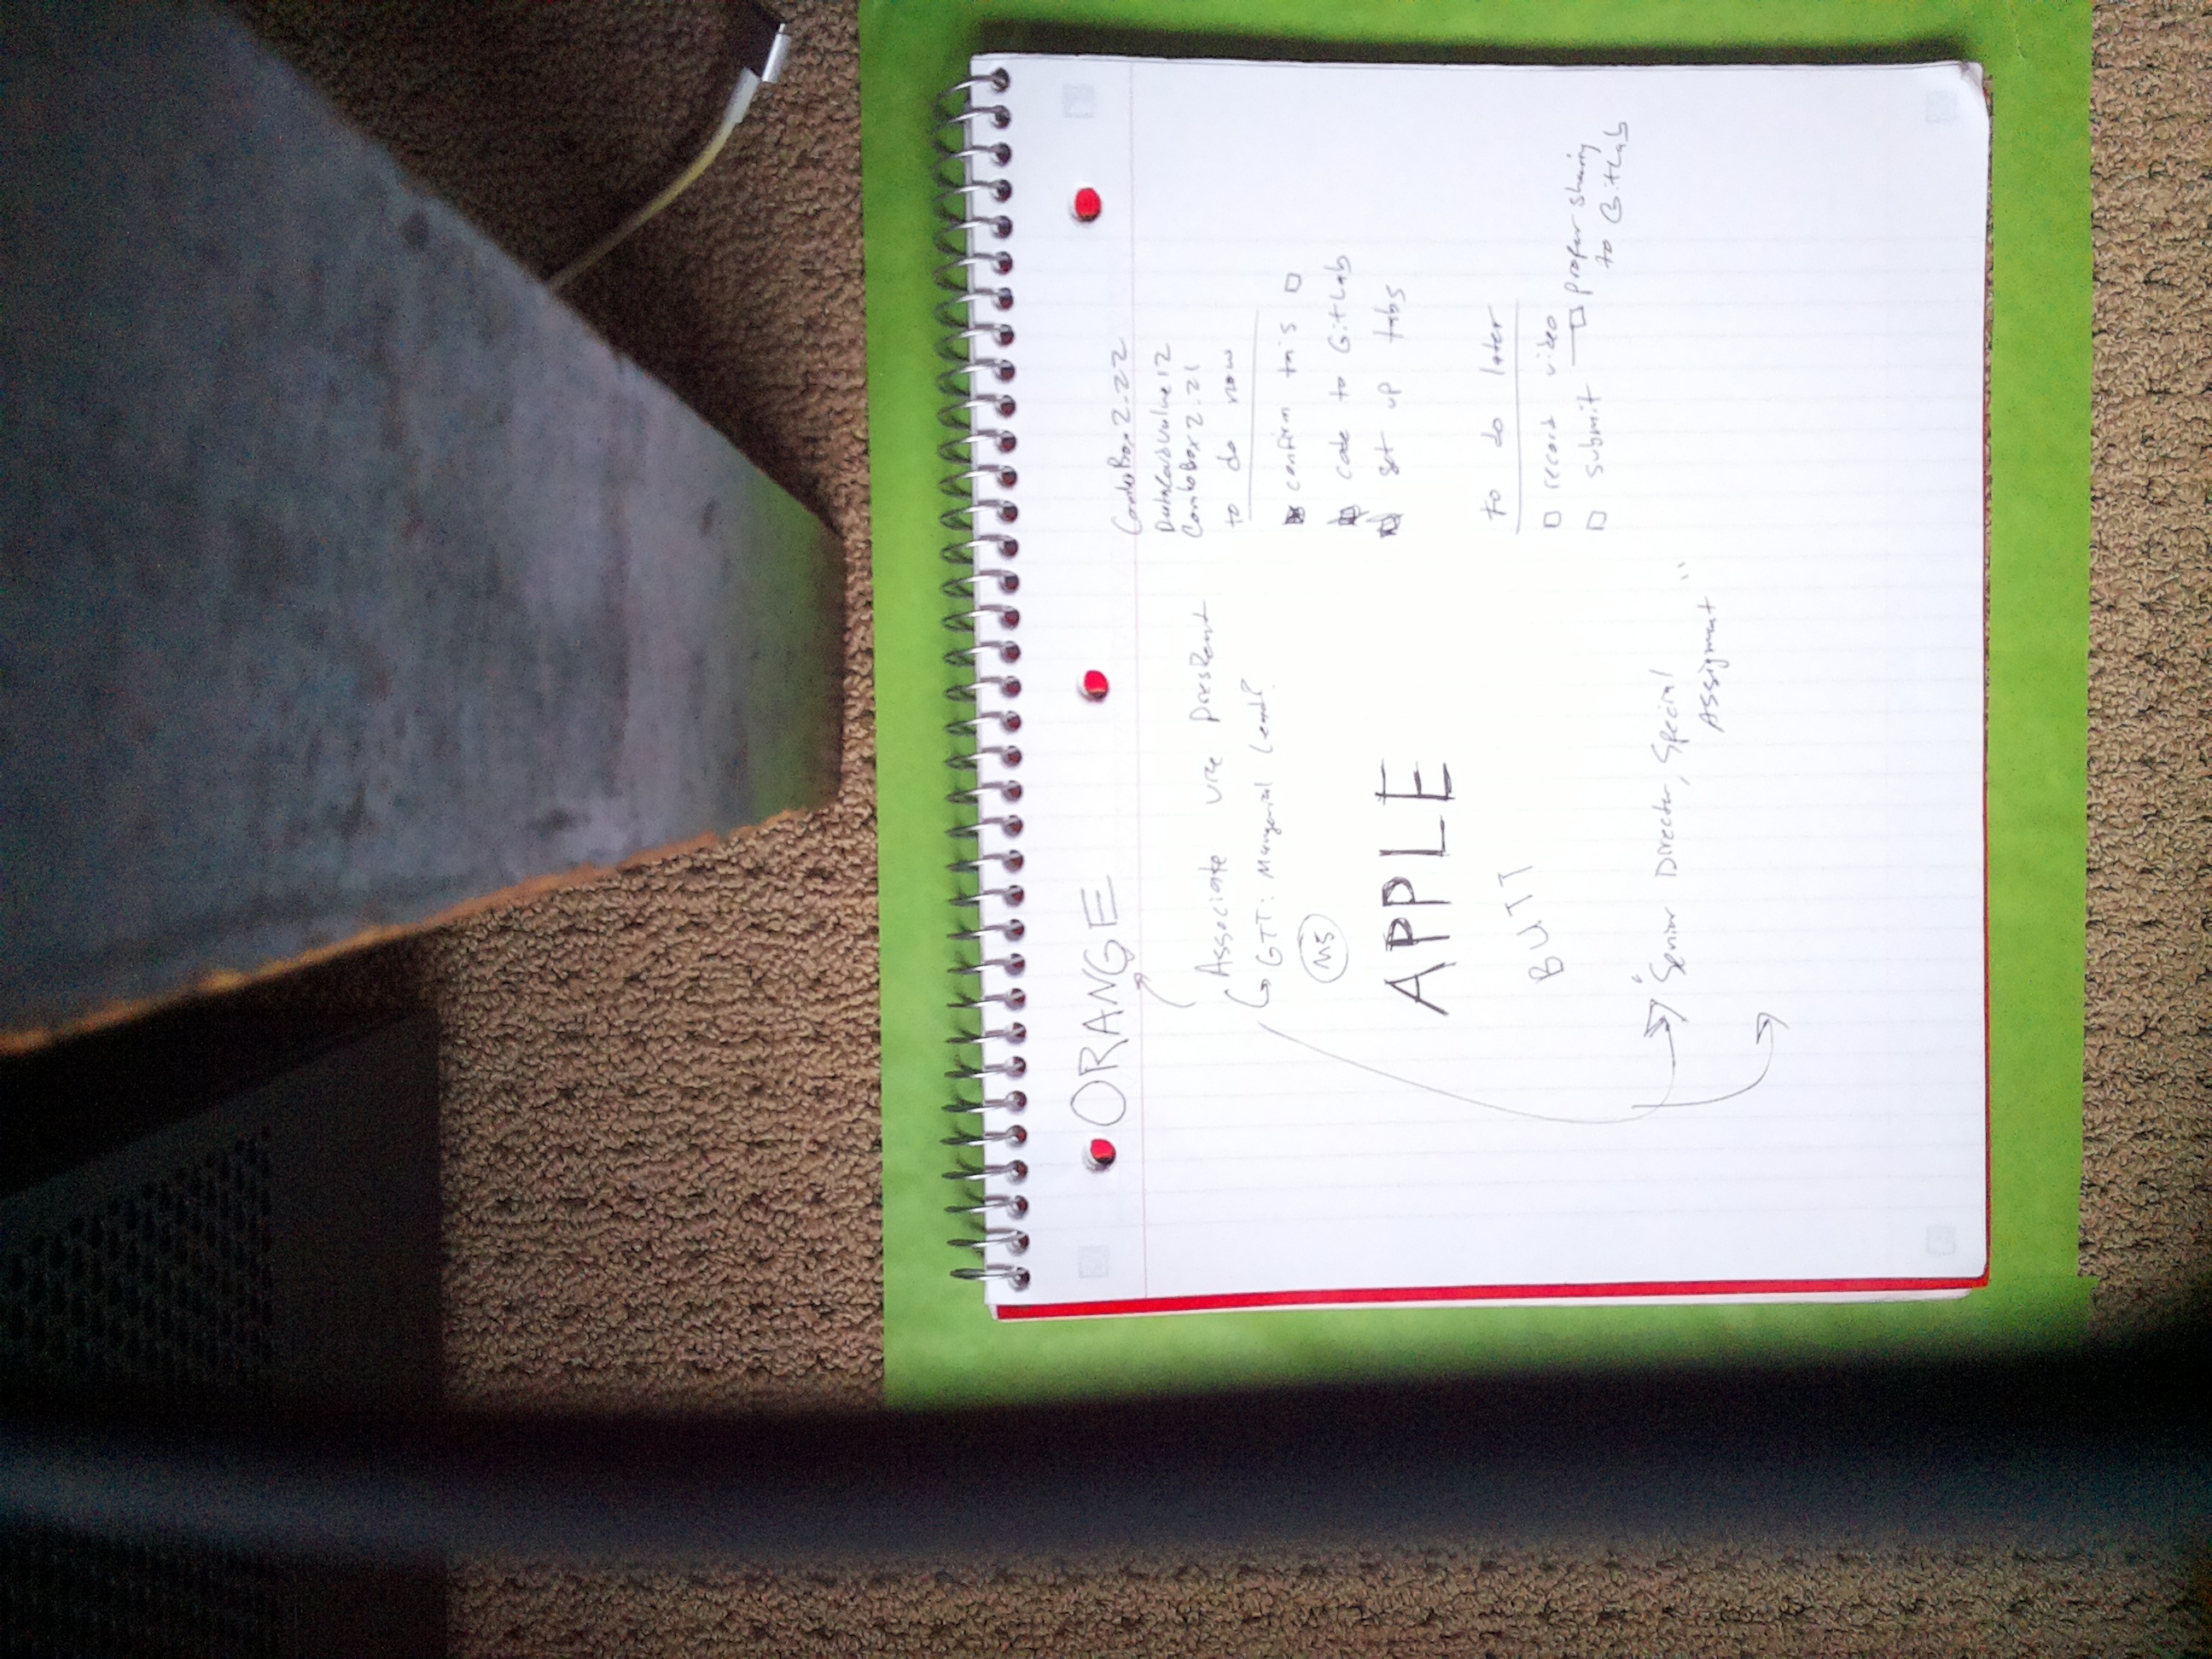 ORANGE
Associate vice president
GTT: Managerial Lead?
MS
APPLE
BUTT
"Senior Director, Special
Assignment"
ComboBox2.22
DataCardValue12
ComboBox2.21
to do now
confirm this
code to GitLab
set up tabs
to do later
record video
submit
proper sharing
to GitLab